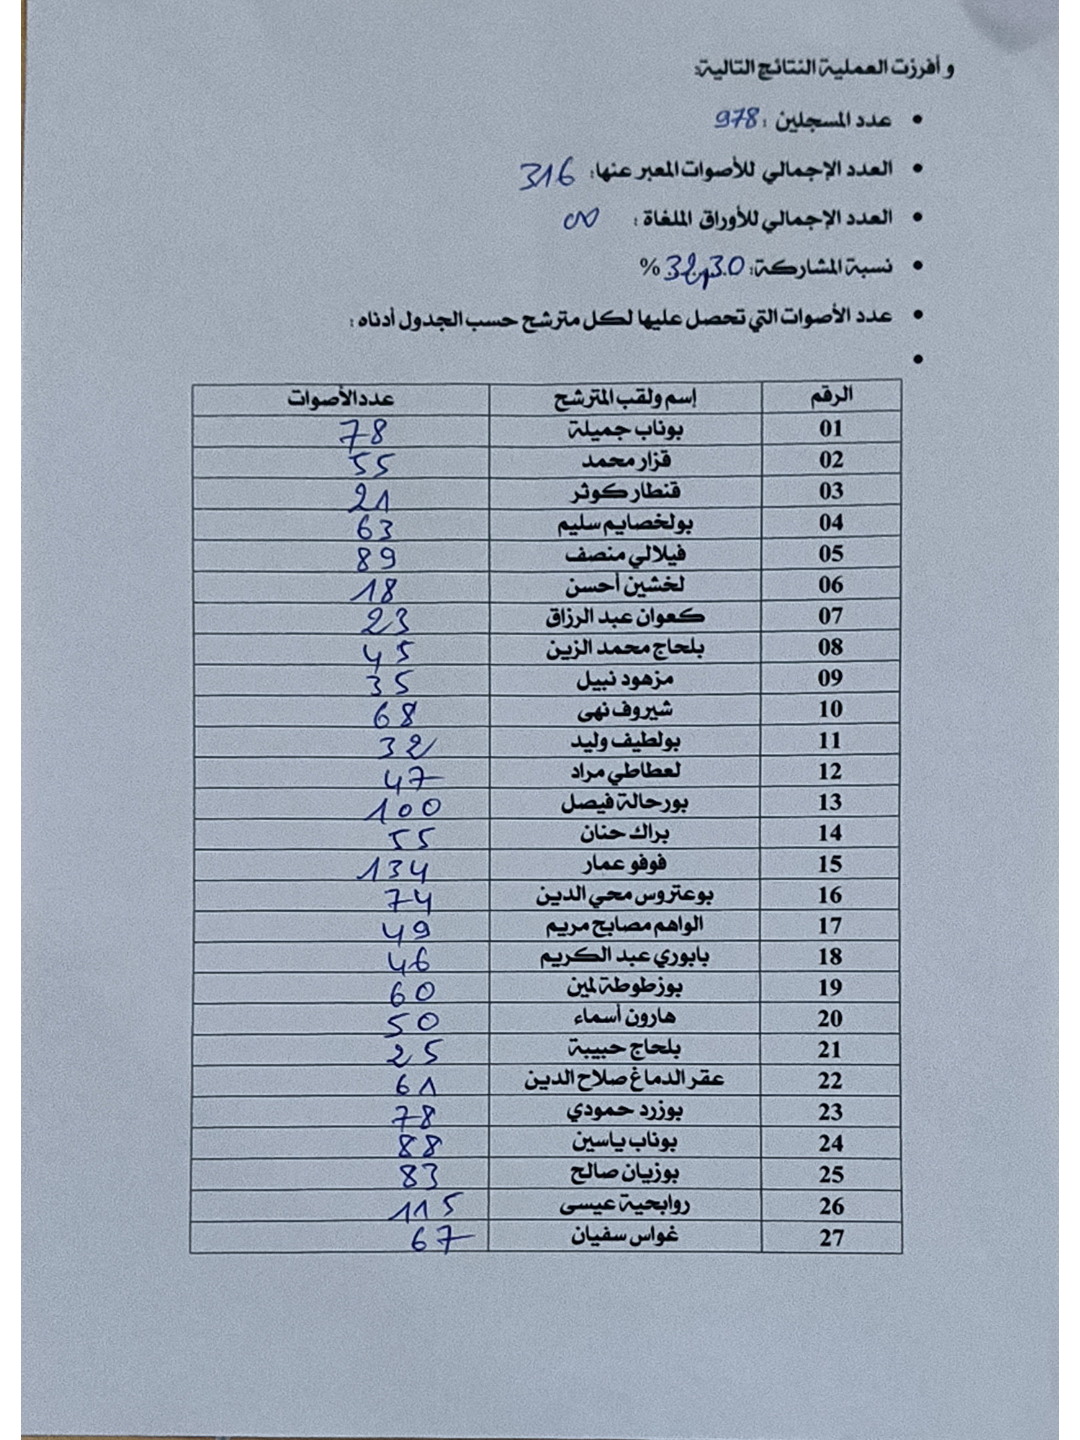 و أفرزت العملية النتائج التالية:
• عدد المسجلين : 978
• العدد الإجمالي للأصوات المعبر عنها: 316
• العدد الإجمالي للأوراق الملغاة : 00
• نسبة المشاركة: 32,30 %
• عدد الأصوات التي تحصل عليها لكل مترشح حسب الجدول أدناه :
•
الرقم إسم ولقب المترشح عددالأصوات
01 بوناب جميلة 78
02 قزار محمد 55
03 قنطار كوثر 21
04 بولخصايم سليم 63
05 فيلالي منصف 89
06 لخشين أحسن 18
07 كعوان عبد الرزاق 23
08 بلحاج محمد الزين 45
09 مزهود نبيل 35
10 شيروف نهى 68
11 بولطيف وليد 32
12 لعطاطي مراد 47
13 بورحالة فيصل 100
14 براك حنان 55
15 فوفو عمار 134
16 بوعتروس محي الدين 74
17 الواهم مصابح مريم 49
18 بابوري عبد الكريم 46
19 بوزطوطة لمين 60
20 هارون أسماء 50
21 بلحاج حبيبة 25
22 عقر الدماغ صلاح الدين 61
23 بوزرد حمودي 78
24 بوناب ياسين 88
25 بوزيان صالح 83
26 روابحية عيسى 115
27 غواس سفيان 67